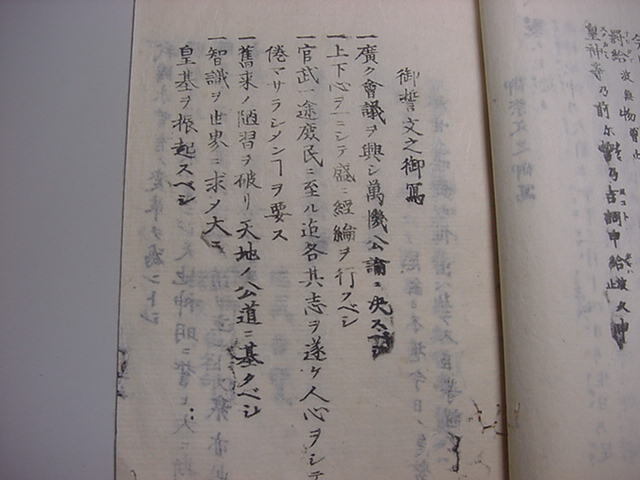 皇神等乃前尓誓乃吉詞申給波久申
御誓文之御寫
一廣ク會議ヲ興シ萬機公論ニ決スベシ
一上下心ヲ一ニシテ盛ニ經綸ヲ行フベシ
一官武一途庶民ニ至ル迄各其志ヲ遂ケ人心ヲシテ
倦マサラシメンヿヲ要ス
一舊来ノ陋習ヲ破リ天地ノ公道ニ基クベシ
一智識ヲ世界ニ求メ大ニ
皇基ヲ振起スベシ